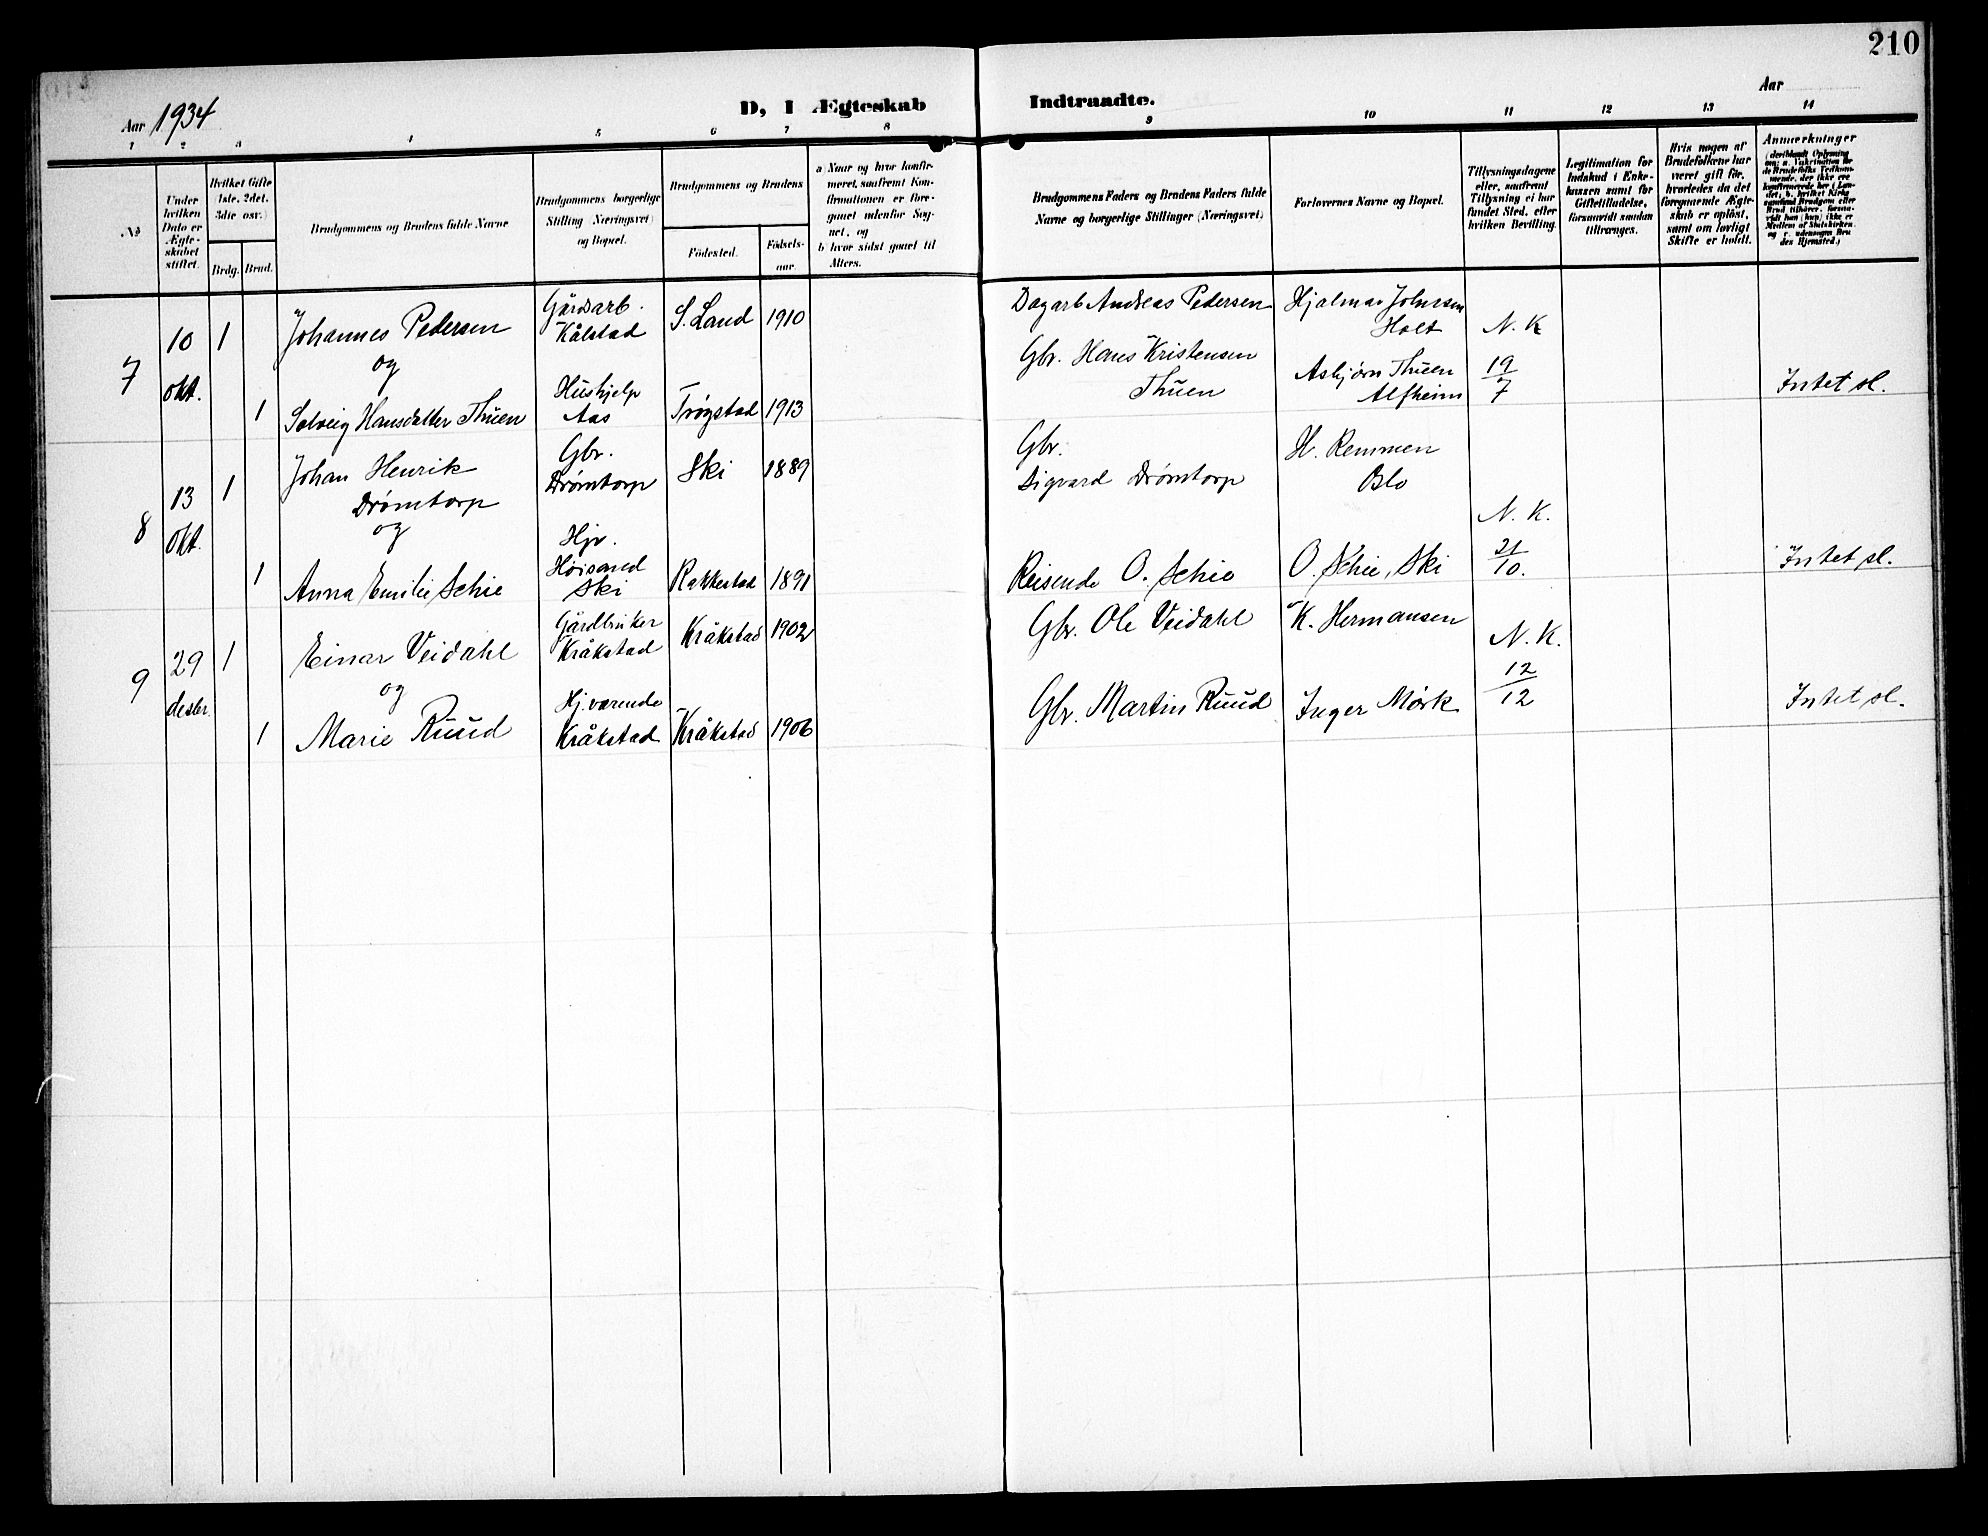 210
Aar 1934
D, I Ægteskab Indtraadte.
Aar
1 2 3 4 5 6 7 8 9 10 11 12 13 14
No
Under hvilken Dato er Ægteskabet stiftet.
Hvilket Gifte (1ste, 2det, 3die osv.)
Brdg. Brud.
Brudgommens og Brudens fulde Navne
Brudgommens borgerlige Stilling (Næringsvei) og Bopæl.
Brudgommens og Brudens
Födested. Födselsaar.
a) Naar og hvor konfirmeret, saafremt Konfirmationen er foregaaet udenfor Sognet, og
b) hvor sidst gaaet til Alters.
Brudgommens Faders og Brudens Faders fulde Navne og borgerlige Stillinger (Næringsvei)
Forlovernes Navne og Bopæl.
Tillysningsdagene eller, saafremt Tillysning ei har fundet Sted, efter hvilken Bevilling.
Legitimation for Indskud i Enkekassen samt for Giftetilladelse, forsaavidt saadan tiltrænges.
Hvis nogen af Brudefolkene har været gift før, hvorledes da det foregaaende Ægteskab er oplöst, samt om lovligt Skifte er holdt.
Anmærkninger
7
10 okt.
1
Johannes Pedersen
og
Gårdarb.
Kålstad
S. Land 1910
Dagarb Andreas Pedersen
Hjalmar Johnsen
Holt
N. K
19/7
1
Solveig Hansdatter Thuen
Hushjelp
Aas
Trøgstad 1913
Gbr. Hans Kristensen
Thuen
Asbjørn Thuen
Alfheim
Intet sl.
8
13 okt.
1
Johan Henrik
Drømtorp
og
Gbr.
Drømtorp
Ski 1889
Gbr.
Sigvard Drømtorp
H. Remmen
Oslo
N. K.
21/10.
1
Anna Emilie Schie
Hjv.
Ski
Rakkestad 1891
Reisende O. Schie
O. Schie, Ski
Intet sl.
9
29 desbr.
1
Einar Veidahl
og
Gårdbruker
Kråkstad
Kråkstad 1902
Gbr. Ole Veidahl
K. Hermansen
N. K.
12/12
1
Marie Ruud
Hj. værende
Kråkstad
Kråkstad 1906
Gbr. Martin Ruud
Inger Mørk
Intet sl.